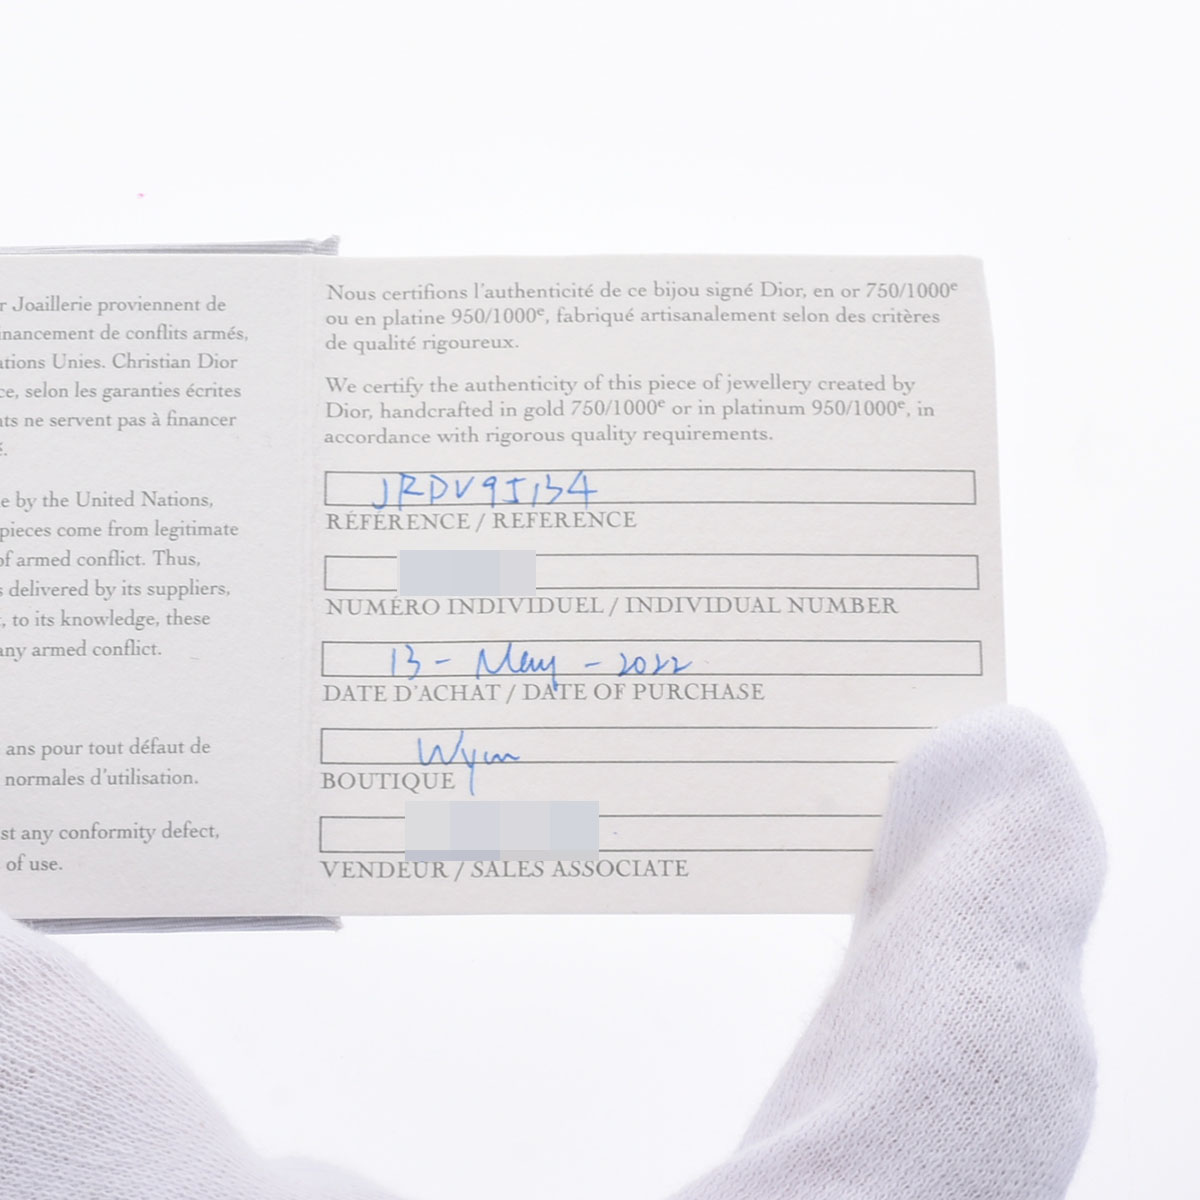 r Joaillerie proviennent de
inancement de conflits armés,
ations Unies. Christian Dior
ce, selon les garanties écrites
nts ne servent pas à financer
é.
e by the United Nations,
pieces come from legitimate
of armed conflict. Thus,
s delivered by its suppliers,
, to its knowledge, these
any armed conflict.
ans pour tout défaut de
normales d'utilisation.
st any conformity defect,
of use.
Nous certifions l'authenticité de ce bijou signé Dior, en or 750/1000e
ou en platine 950/1000e, fabriqué artisanalement selon des critères
de qualité rigoureux.
We certify the authenticity of this piece of jewellery created by
Dior, handcrafted in gold 750/1000e or in platinum 950/1000e, in
accordance with rigorous quality requirements.
JRDV95134
RÉFÉRENCE / REFERENCE
NUMÉRO INDIVIDUEL / INDIVIDUAL NUMBER
13 - May - 2022
DATE D'ACHAT / DATE OF PURCHASE
BOUTIQUE
VENDEUR / SALES ASSOCIATE